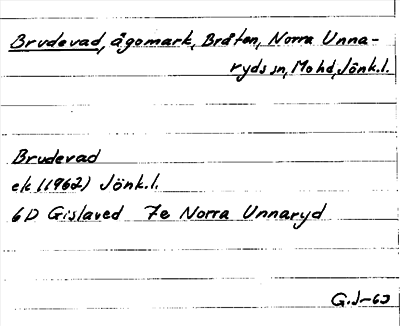 Brudevad, ägomark, Bråten, Norra Unna-
ryds sn, Mo hd, Jönk.l.
Brudevad
ek (1962) Jönk.l.
6D Gislaved 7e Norra Unnaryd
G.J-63